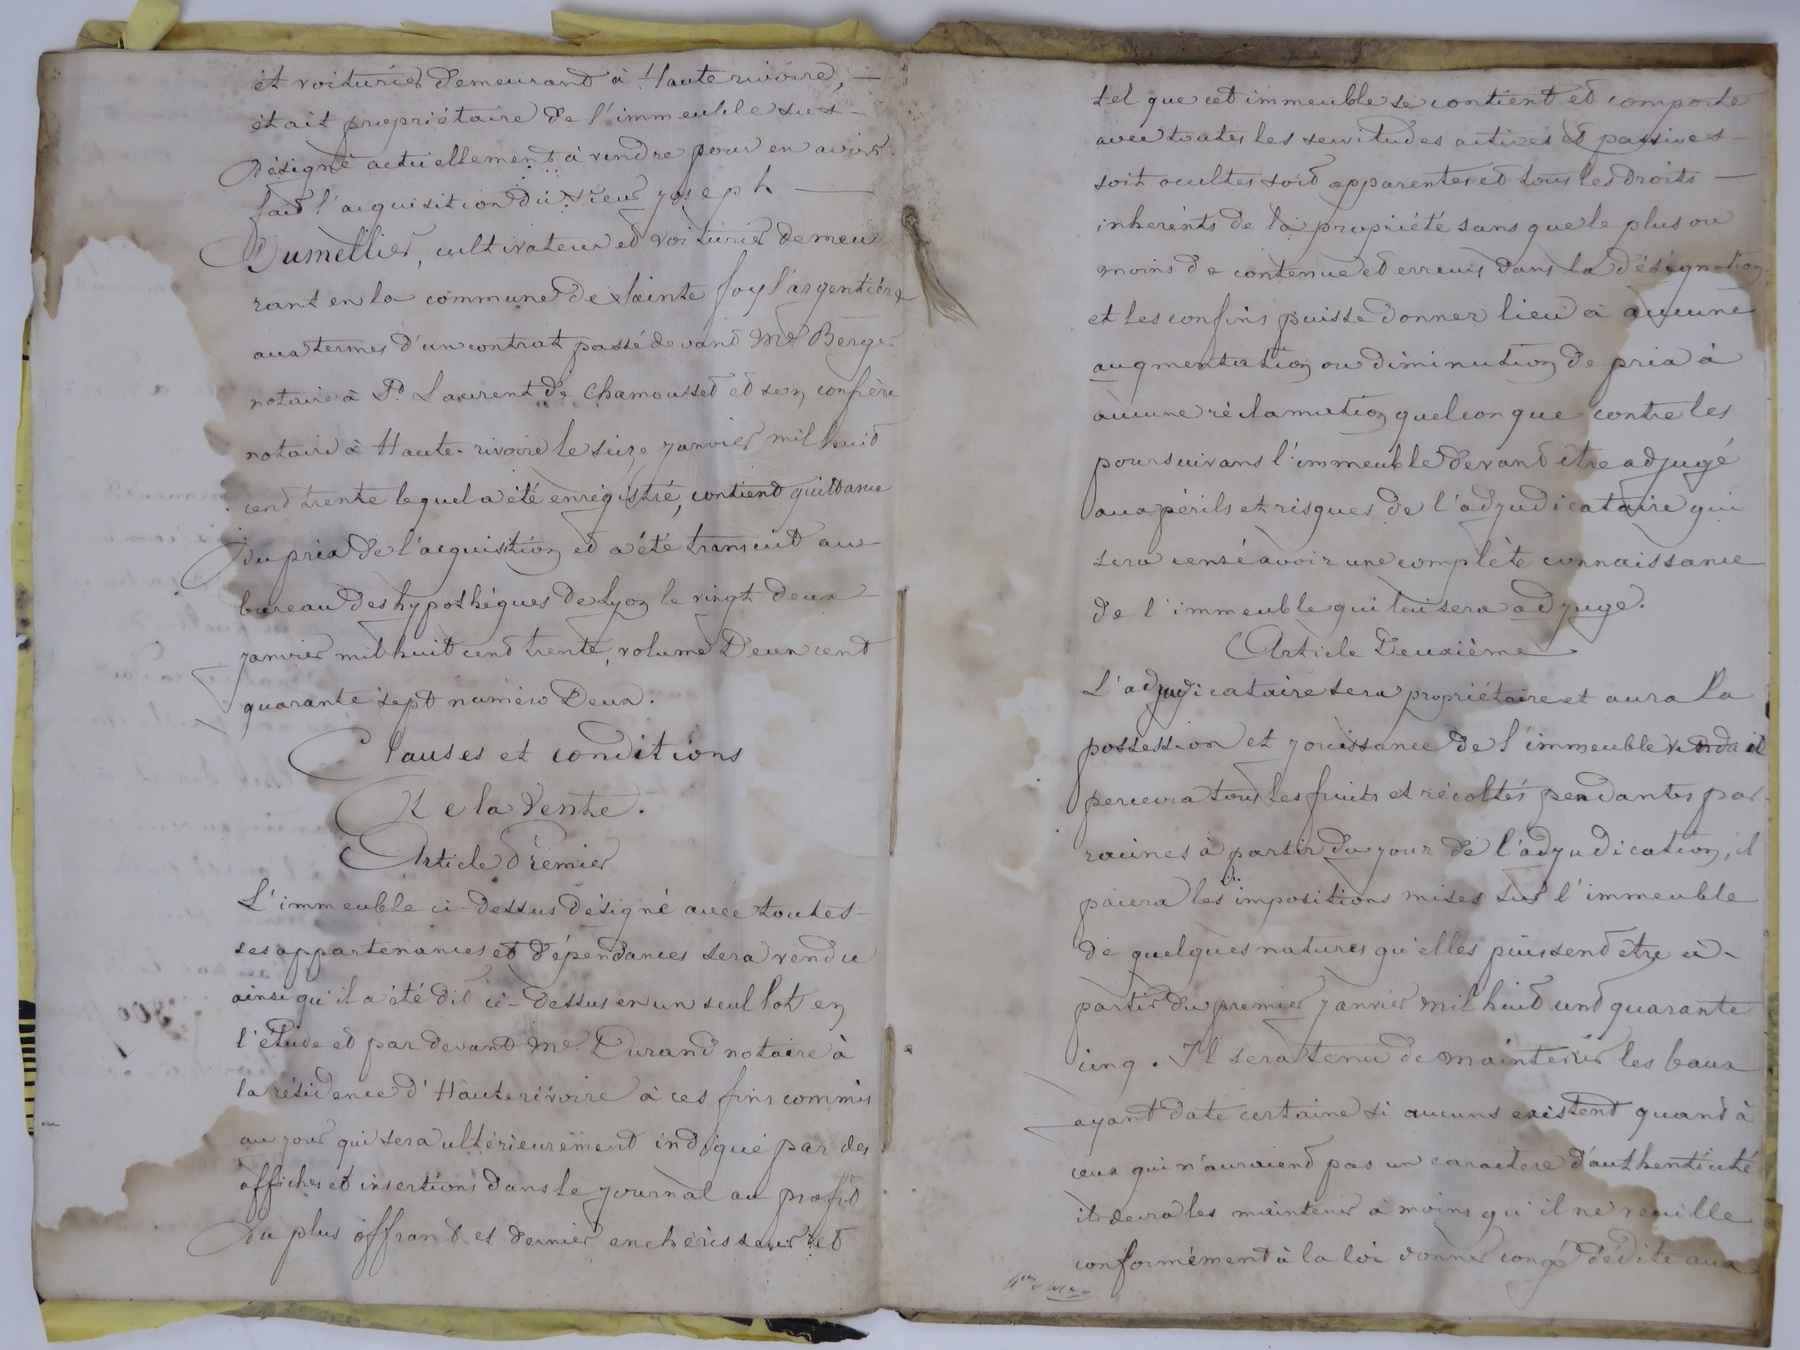 et voiturier demeurant à Hauterivoire, —
était propriétaire de l'immeuble sus-
désigné actuellement à vendre pour en avoir
fait l'acquisition du sieur Joseph —
Dumellier, cultivateur et voiturier demeu
rant en la commune de Sainte foy l'argentière
aux termes d'un contrat passé devant Me. Berger
notaire à St. Laurent de Chamousset et son confrère
notaire à Haute-rivoire le seize janvier mil huit
cent trente lequel a été enrégistré, contient quittance
du prix de l'acquisition et a été transcrit au
bureau des hypothèques de Lyon le vingt deux
janvier mil huit cent trente, volume Deux cent
quarante sept numéro Deux.
Clauses et conditions
De la Vente.
Article Premier
L'immeuble ci-dessus désigné avec toutes-
ses appartenances et dépendances sera vendu
ainsi qu'il a été dit ci-dessus en un seul lot en
l'étude et par devant Me. Durand notaire à
la résidence d'Hauterivoire à ces fins commis
au jour qui sera ultérieurement indiqué par des
affiches et insertions dans le journal au profit
Du plus offrant et dernier enchérisseur et
tel que cet immeuble se contient et comporte
avec toutes les servitudes actives et passives-
soit ocultes soit apparentes et tous les droits —
inhérents de la propriété sans que le plus ou
moins de contenue et erreurs dans la désignation
et les confins puisse donner lieu à aucune
augmentation ou diminution de prix à
aucune réclamation quelconque contre les
poursuivans l'immeuble devant être adjugé
aux périls et risques de l'adjudicataire qui
sera censé avoir une complète connaissance
de l'immeuble qui lui sera adjugé.
Article Deuxième
L'adjudicataire sera propriétaire et aura la
possession et jouissance de l'immeuble vendu il
percevra tous les fruits et récoltés pendantes par
racines à partir du jour de l'adjudication, il
paiera les impositions mises sur l'immeuble
de quelques natures qu'elles puissent être à-
partir du premier janvier mil huit cent quarante
cinq. Il sera tenu de maintenir les baux
ayant date certaine si aucuns existent quant à
ceux qui n'auraient pas un caractère d'authenticité
il devra les maintenir à moins qu'il ne veuille
conformément à la loi donner congé dédite aux